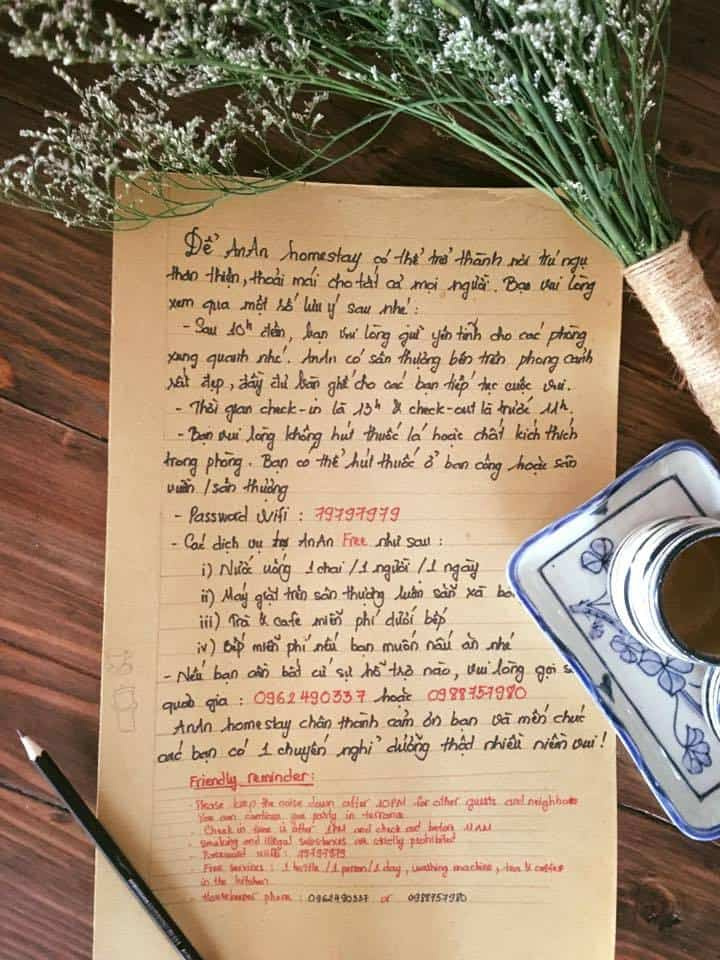 Để AnAn homestay có thể trở thành nơi trú ngụ
thân thiện, thoải mái cho tất cả mọi người. Bạn vui lòng
xem qua một số lưu ý sau nhé:
- Sau 10h đêm, bạn vui lòng giữ yên tĩnh cho các phòng
xung quanh nhé. AnAn có sân thượng bên trên phong cảnh
rất đẹp, đầy đủ bàn ghế cho các bạn tiếp tục cuộc vui.
- Thời gian check-in là 13h & check-out là trước 11h.
- Bạn vui lòng không hút thuốc lá hoặc chất kích thích
trong phòng. Bạn có thể hút thuốc ở ban công hoặc sân
vườn / sân thượng
- Password Wifi : 79797979
- Các dịch vụ tại AnAn Free như sau :
i) Nước uống 1 chai / 1 người / 1 ngày
ii) Máy giặt trên sân thượng luôn sẵn xà bô
iii) Trà & cafe miễn phí dưới bếp
iv) Bếp miễn phí nếu bạn muốn nấu ăn nhé
- Nếu bạn cần bất cứ sự hỗ trợ nào, vui lòng gọi s
quản gia : 0962490337 hoặc 0988757980
AnAn homestay chân thành cảm ơn bạn và mến chúc
các bạn có 1 chuyến nghỉ dưỡng thật nhiều niềm vui!
Friendly reminder:
- Please keep the noise down after 10PM for other guests and neighbors
You can continue your party in terrace
- Check in time is after 1PM and check out before 11AM
- smoking and illegal substances are strictly prohibited
- Password wifi : 79797979
- Free services : 1 bottle / 1 person / 1 day, washing machine, tea & coffee
in the kitchen
- Housekeeper phone : 0962490337 or 0988757980